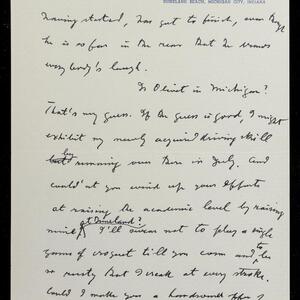 DUNELAND BEACH, MICHIGAN CITY, INDIANA
having started, has got to finish, even tho
he is so far in the rear that he arouses
everybody's laugh.
Is Olivet in Michigan?
That's my guess. If the guess is good, I might
exhibit my newly acquired driving skill
by running over there in July. And
couldn't you wind up your efforts
at raising the academic level by raising
mine at Duneland? I'll swear not to play a single
game of croquet till you come and to be
so rusty that I creak at every stroke.
Could I make you a handsomer